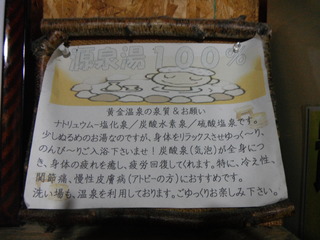 源泉湯100%
黄金温泉の泉質&お願い
ナトリュウムー塩化泉/炭酸水素泉/硫酸塩泉です。
少しぬるめのお湯なのですが、身体をリラックスさせゆっく~り、
のんび~りご入浴下さいませ!炭酸泉(気泡)が全身につ
き、身体の疲れを癒し、疲労回復してくれます。特に、冷え性、
関節痛、慢性皮膚病(アトピーの方)におすすめです。
洗い場も、温泉を利用しております。ごゆっくりお楽しみ下さい。